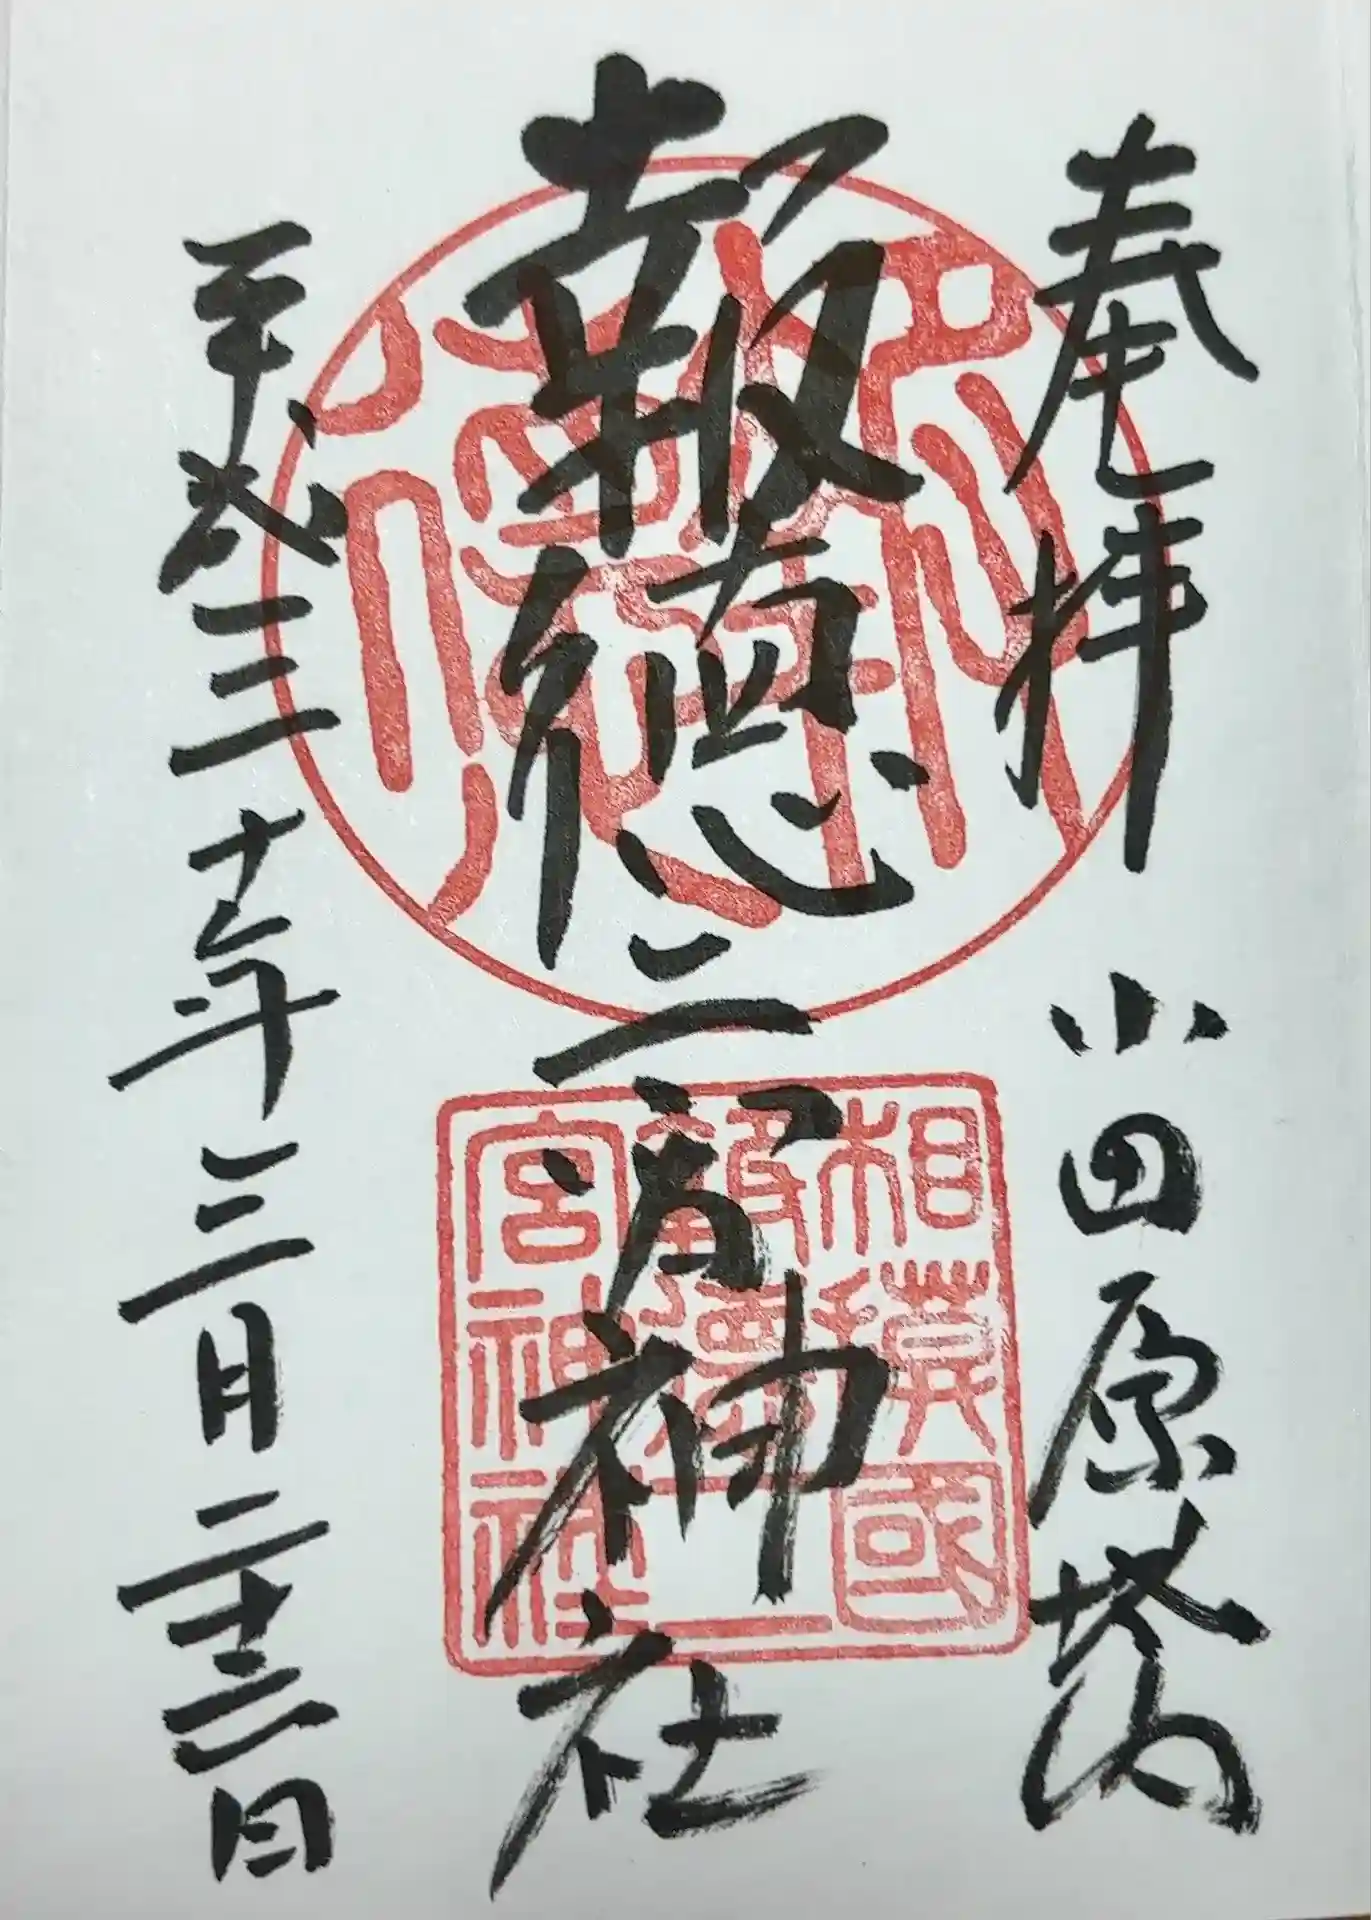 奉拝 小田原城内
報徳二宮神社
平成三十年三月二十三日
相模國
報徳二
宮神社